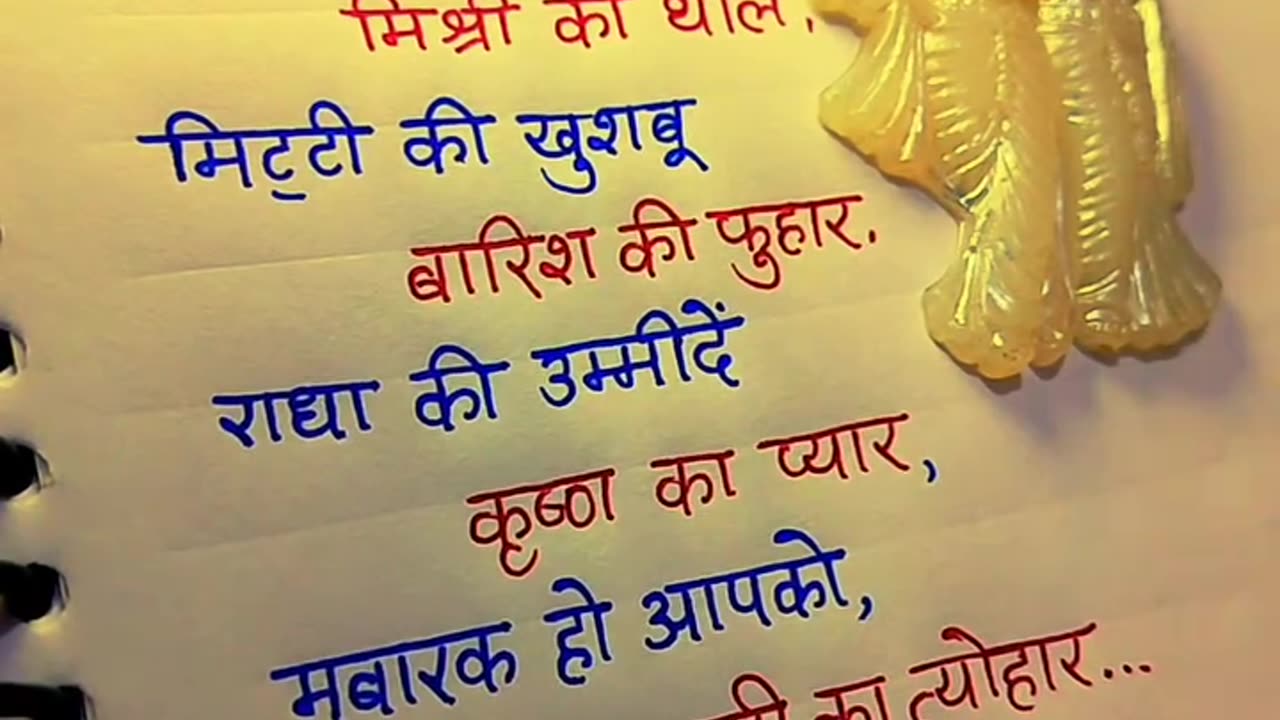 मिश्री की थाल.
मिट्टी की खुशबू
बारिश की फुहार.
राधा की उम्मीदें
कृष्ण का प्यार,
मबारक हो आपको,
का त्योहार...